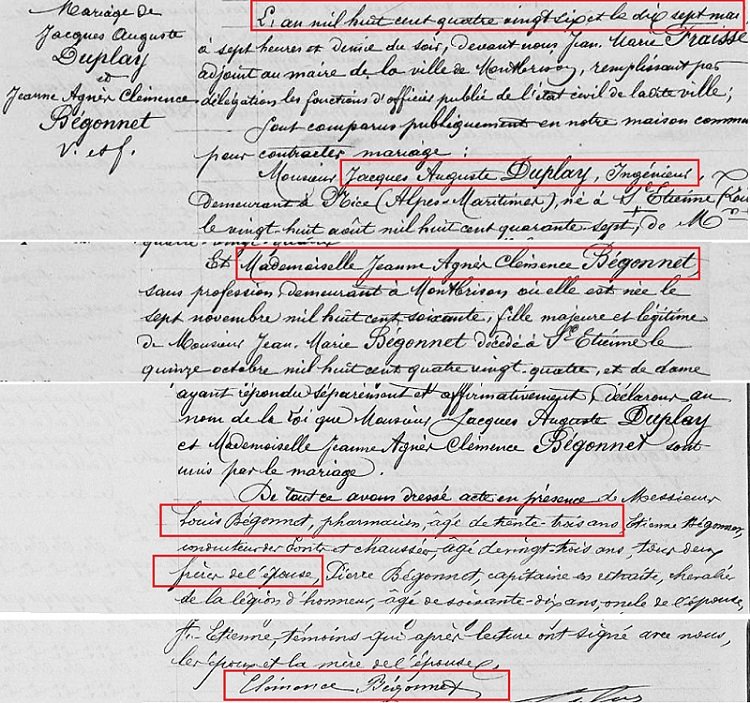 Mariage de
Jacques Auguste
Duplay
et
Jeanne Agnès Clémence
Bégonnet
V. et f.
L'an mil huit cent quatre vingt six et le dix sept mai
à sept heures et demie du soir, devant nous Jean Marie Fraisse
adjoint au maire de la ville de Montbrison, remplissant par
délégation les fonctions d'officier public de l'état civil de ladite ville;
Sont comparus publiquement en notre maison commu
pour contracter mariage :
Monsieur Jacques Auguste Duplay, Ingénieur,
demeurant à Nice (Alpes-Maritimes), né à St Etienne (Loi
le vingt-huit août mil huit cent quarante-sept, de Mr
Et Mademoiselle Jeanne Agnès Clémence Bégonnet,
sans profession, demeurant à Montbrison où elle est née le
sept novembre mil huit cent soixante, fille majeure et légitime
de Monsieur Jean-Marie Bégonnet décédé à St Etienne le
quinze octobre mil huit cent quatre vingt-quatre, et de dame
ayant répondu séparément et affirmativement, déclarons au
nom de la loi que Monsieur Jacques Auguste Duplay
et Mademoiselle Jeanne Agnès Clémence Bégonnet sont
unis par le mariage.
De tout ce avons dressé acte en présence de Messieurs
Louis Bégonnet, pharmacien, âgé de trente-trois ans, Etienne Bégonnet,
conducteur des Ponts et chaussées, âgé de vingt-trois ans, tous deux
frères de l'épouse, Pierre Bégonnet, capitaine en retraite, chevalier
de la légion d'honneur, âgé de soixante-dix ans, oncle de l'épouse,
St-Etienne, témoins qui après lecture ont signé avec nous,
les époux et la mère de l'épouse,
Clémence Bégonnet